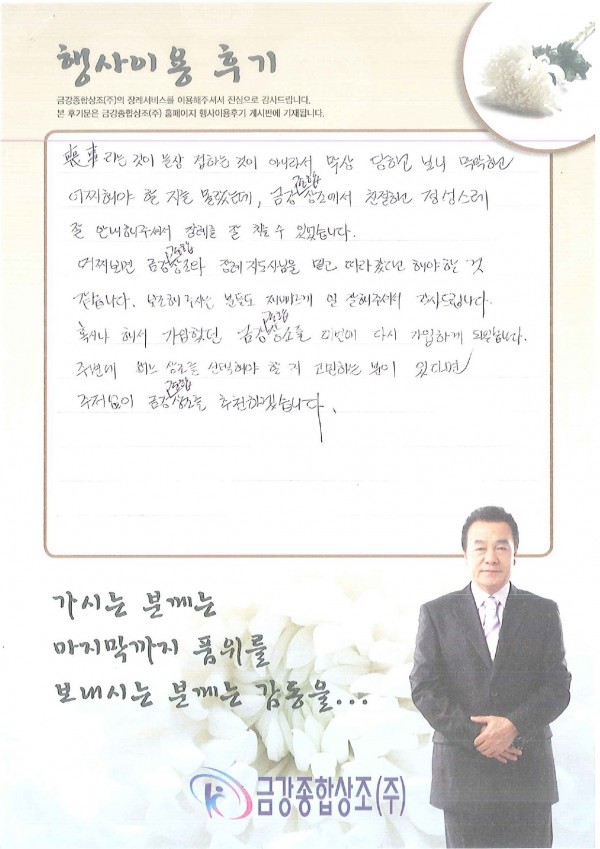 행사이용 후기
금강종합상조(주)의 장례서비스를 이용해주셔서 진심으로 감사드립니다.
본 후기문은 금강종합상조(주) 홈페이지 행사이용후기 게시판에 기재됩니다.
喪事라는 것이 늘상 접하는 것이 아니라서 막상 당하고 보니 막막하고
어찌해야 할 지를 몰랐는데, 금강종합상조에서 친절하고 정성스레
잘 안내해주셔서 장례를 잘 치룰 수 있었습니다.
어찌보면 금강종합상조와 장례지도사님을 믿고 따라갔다고 해야 할 것
같습니다. 보조해 주시는 분들도 재빠르게 일 잘해주셔서 감사드립니다.
혹시나 해서 가입했던 금강종합상조를 이번에 다시 가입하게 되었습니다.
주변에 어느 상조를 선택해야 할 지 고민하는 분이 있다면
주저없이 금강종합상조를 추천하겠습니다.
가시는 분께는
마지막까지 품위를
보내시는 분께는 감동을...
금강종합상조(주)